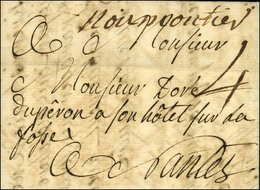 Noirmoutier
A Monsieur
4
A Monsieur Doré
duperon a son hôtel sur la
fosse
A Nantes